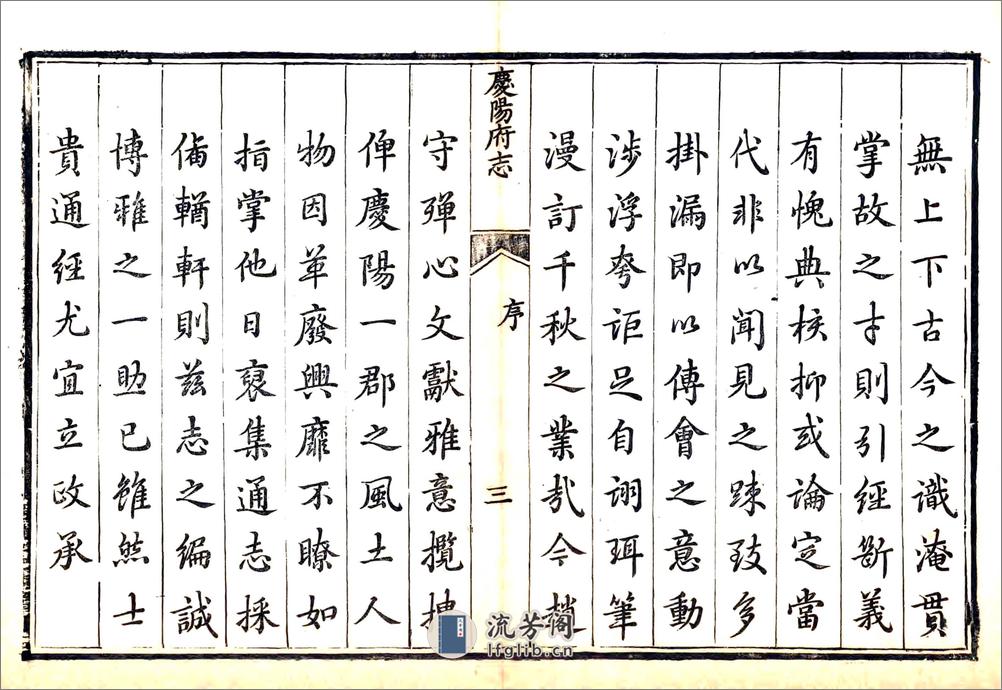 無上下古今之識淹貫
掌故之才則引經斷義
有愧典核抑或論定當
代非以聞見之踈致多
掛漏即以傅會之意動
涉浮夸詎足自詡珥筆
漫訂千秋之業哉今趙
慶陽府志
序
三
守殫心文獻雅意攬
俾慶陽一郡之風土人
物因革廢興靡不瞭如
指掌他日裒集通志採
備輶軒則茲志之編誠
博雅之一助已雖然士
貴通經尤宜立政承
流芳阁
lfglib.cn